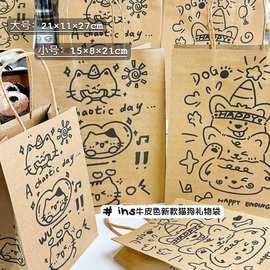 大号：21×11×27cm
小号：15×8×21cm
A chaotic day...
DOG
HAPPY
HAPPY ENDING
A chaotic
# ins牛皮色新款猫狗礼物袋